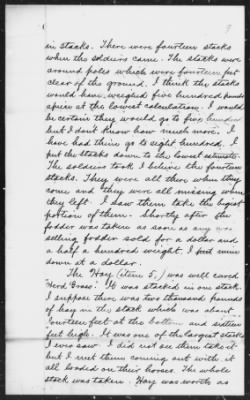 9
in stacks. There were fourteen stacks
when the soldiers came. The stacks were
around poles which were fourteen feet
clear of the ground. I think the stacks
would have weighed five hundred pounds
apiece at the lowest calculation. I would
be certain they would go to five hundred
but I dont know how much more. I
have had them go to eight hundred. I
put the stacks down to the lowest estimate.
The soldiers took I believe the fourteen
stacks. They were all there when they
come and they were all missing when
they left. I saw them take the bigest
portion of them. Shortly after the
fodder was taken as soon as any was
selling fodder sold for a dollar and
a half a hundred weight. I put mine
down at a dollar.
The Hay (item 5,) was well cured
"Herd Grass". It was stacked in one stack.
I suppose there was two thousand pounds
of hay in the stack which was about
fourteen feet at the bottom and sixteen
feet high. It was one of the largest stacks
I ever saw. I did not see them take it
but I met them coming out with it
all loaded on their horses. The whole
stack was taken. Hay was worth as